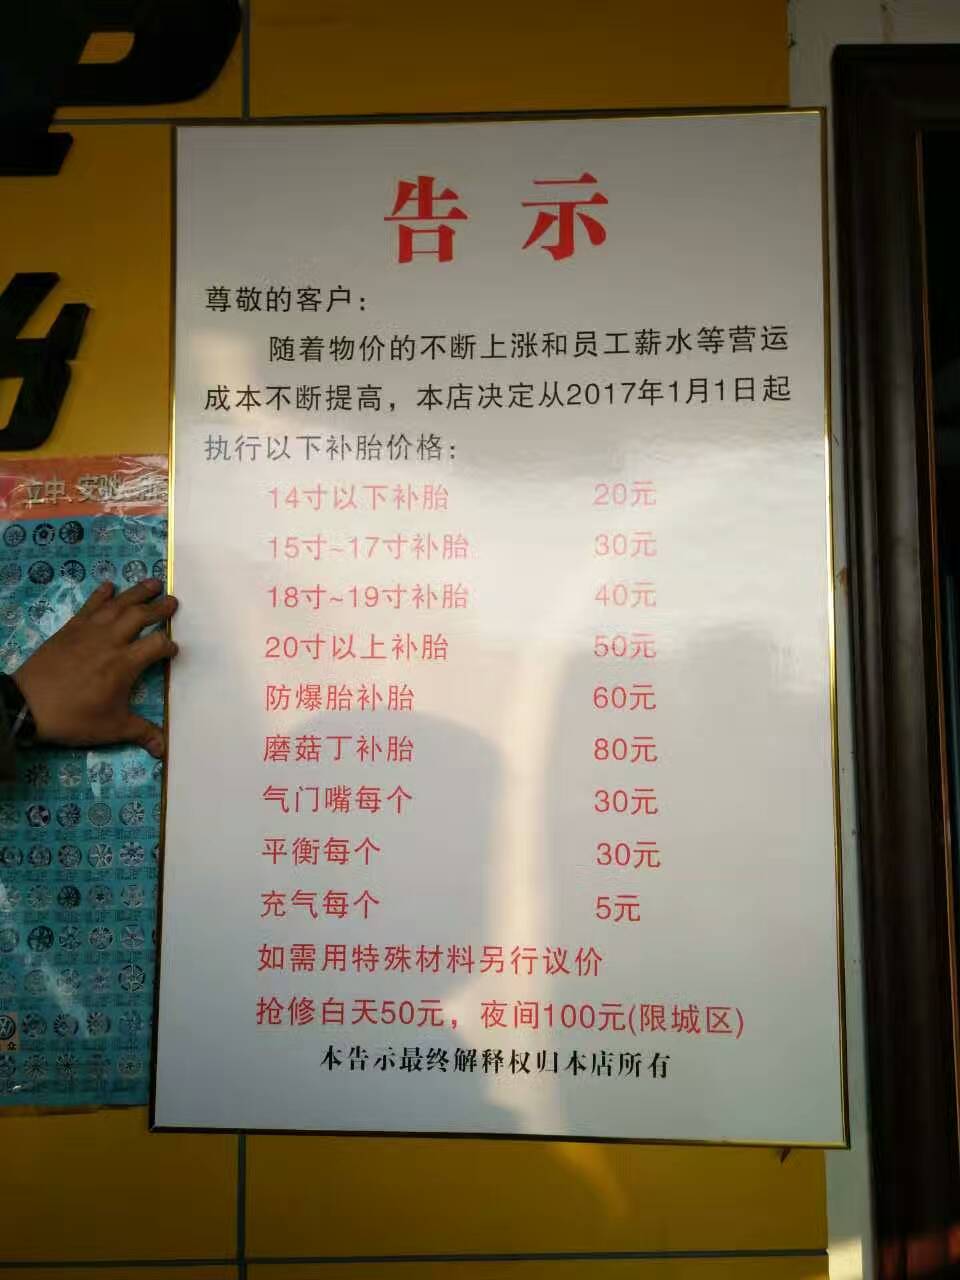 告示
尊敬的客户：
随着物价的不断上涨和员工薪水等营运
成本不断提高，本店决定从2017年1月1日起
执行以下补胎价格：
14寸以下补胎 20元
15寸~17寸补胎 30元
18寸~19寸补胎 40元
20寸以上补胎 50元
防爆胎补胎 60元
磨菇丁补胎 80元
气门嘴每个 30元
平衡每个 30元
充气每个 5元
如需用特殊材料另行议价
抢修白天50元，夜间100元(限城区)
本告示最终解释权归本店所有
立中、安驰